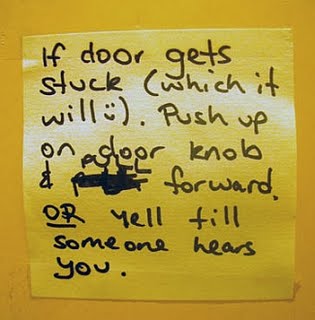 If door gets
stuck (which it
will ü). Push up
on door knob
& PULL forward.
OR yell till
someone hears
you.